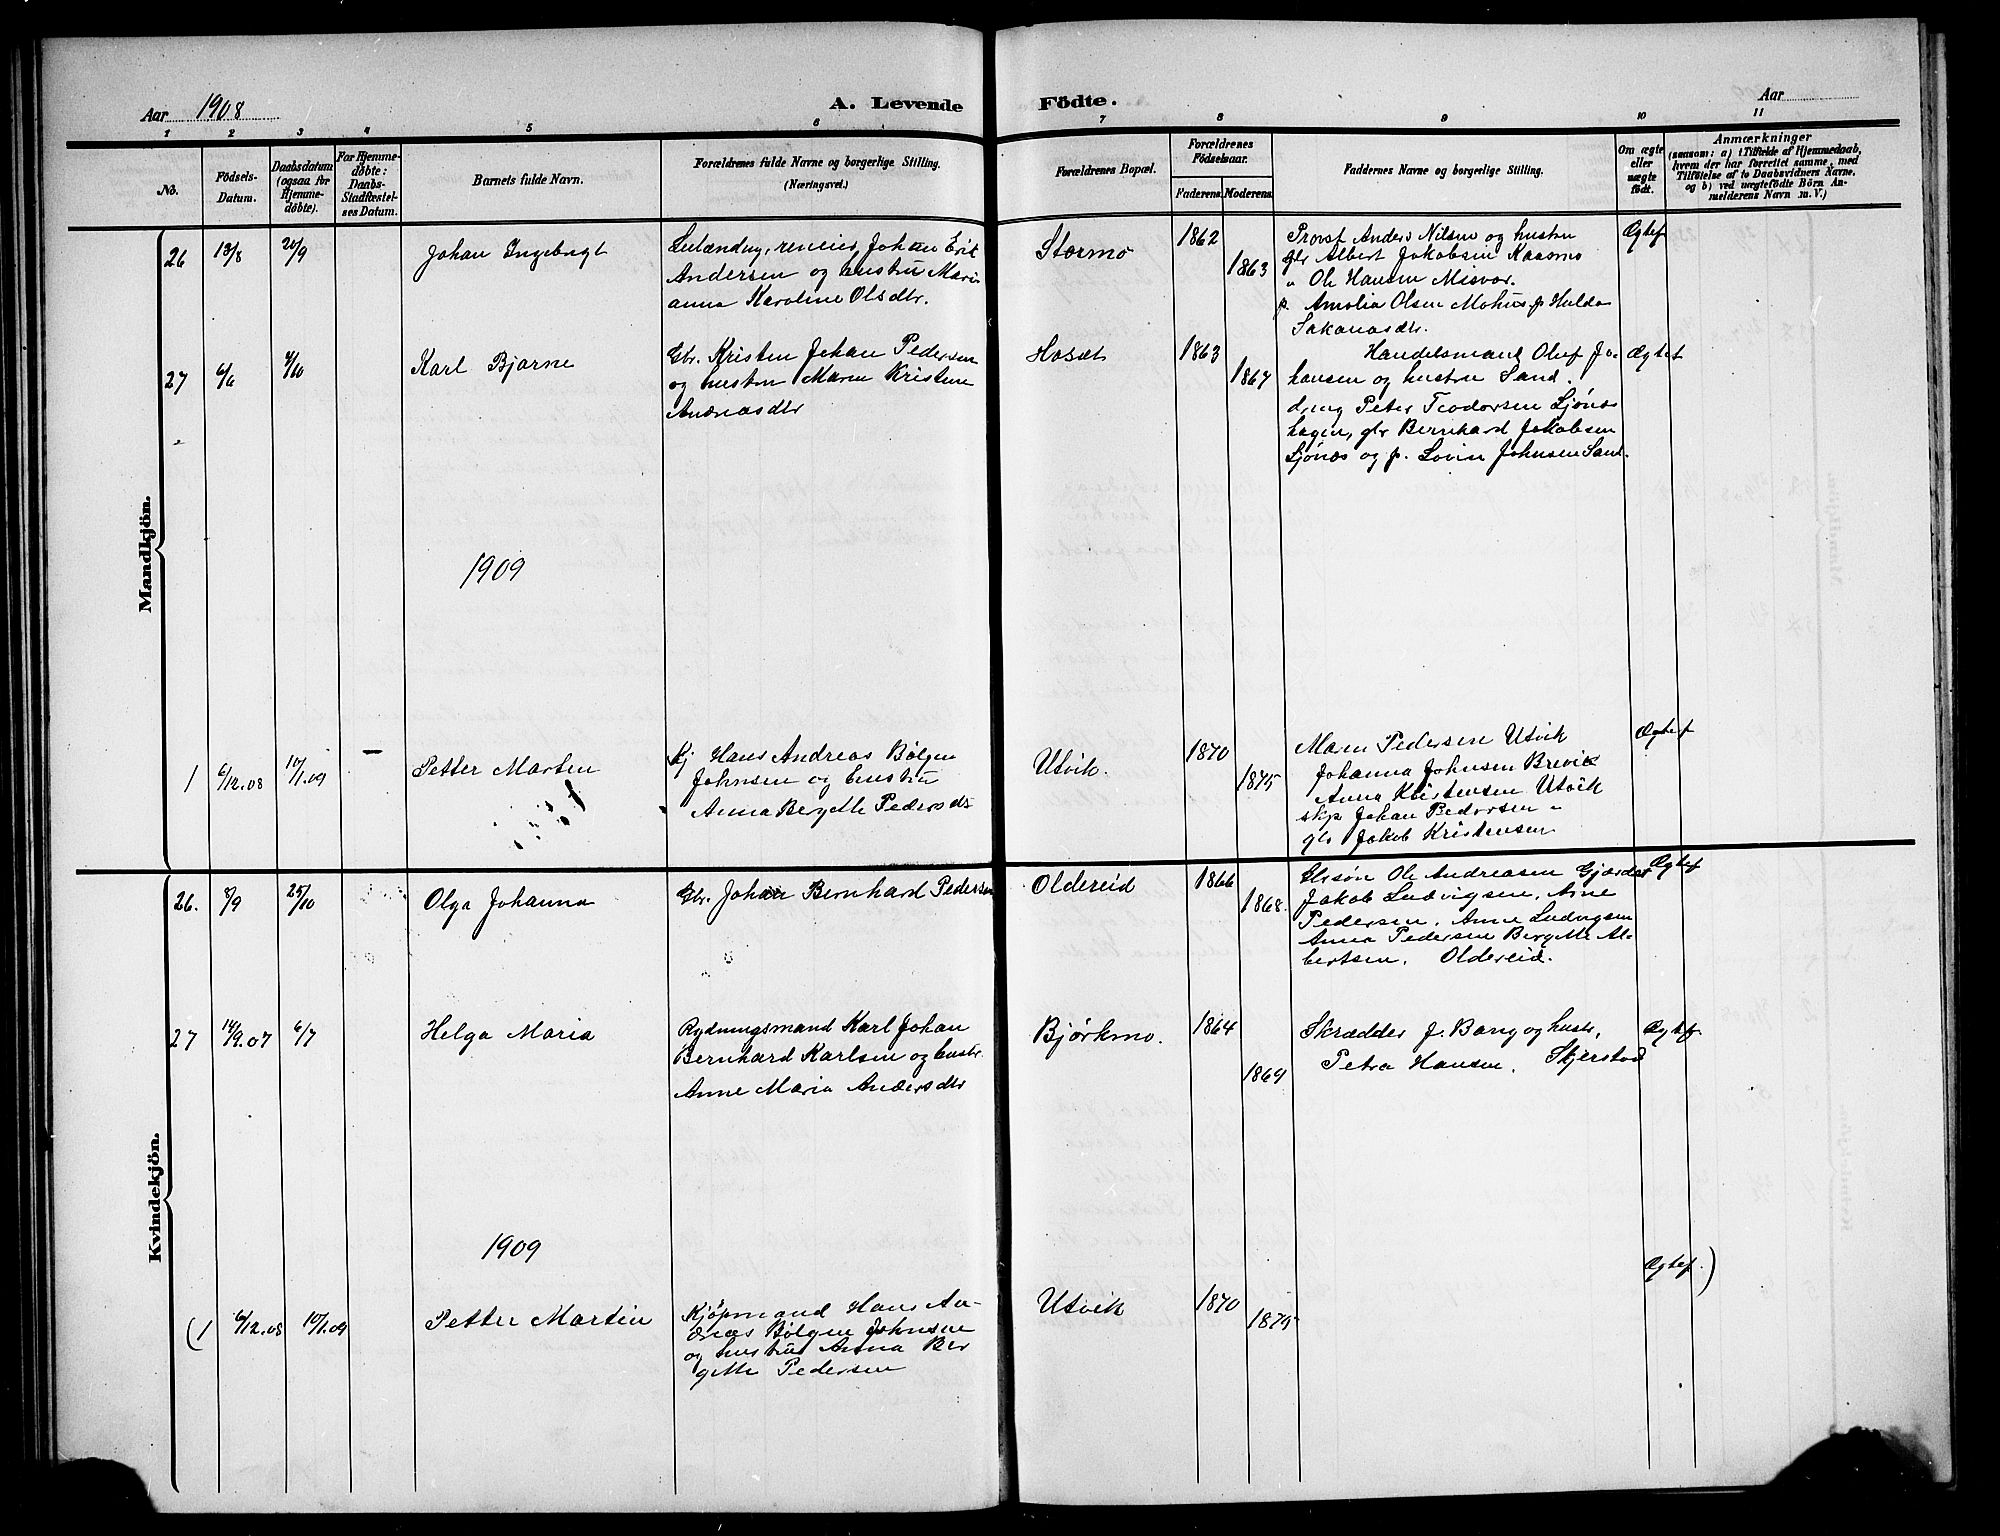 Aar 1908
A. Levende Födte.
Aar
1 2 3 4 5 6 7 8 9 10 11
No.
Födsels-
Datum.
Daabsdatum
(ogsaa for
Hjemme-
döbte).
For Hjemme-
döbte:
Daabs-
Stadfæstel-
ses Datum.
Barnets fulde Navn.
Forældrenes fulde Navne og borgerlige Stilling.
(Næringsvei.)
Forældrenes Bopæl.
Forældrenes
Födselsaar.
Faderens. Moderens.
Faddernes Navne og borgerlige Stilling.
Om ægte
eller
uægte
födt.
Anmærkninger
(saasom: a) i Tilfælde af Hjemmedaab,
hvem der har forrettet samme, med
Tilföielse af to Daabsvidners Navne,
og b) ved uægtefödte Börn An-
melderens Navn m. V.)
Mandkjön.
26 13/8 20/9
Johan Ingebrigt
Johan Erik
Andersen og hustru Mari-
anna Karoline Olsdtr.
Stormo
1862
1863
Provst Anders Nilsen og hustru
gbr Albert Jakobsen Kaasmo
" Ole Hansen Misvær.
p. Amalia Olsen Mohus p Hulda
Sakariasdtr.
Ægtef
27 6/6 4/10
Karl Bjarne
Gbr. Kristen Johan Pedersen
og hustru Maren Kristine
Andreasdtr
Hosæt
1863
1867
Handelsmand Oluf Jo-
hansen og hustru Sand.
dreng Peter Teodorsen Ljønes
hagen, gbr Bernhard Jakobsen
Ljønes og p. Lovise Johnsen Sand.
Ægtef
1909
1 6/12.08 10/1.09 —
Petter Martin
Kj Hans Andreas Bølgen
Johnsen og hustru
Anna Bergette Pedersdtr
Utvik.
1870
1875
Maren Pedersen Utvik
Johanna Johnsen Brevik
Anna Kristensen Utvik
skp Johan Pedersen "
gbr Jakob Kristensen
Ægtef
Kvindekjön.
26. 8/9 25/10
Olga Johanna
Gbr. Johan Bernhard Pedersen
Oldereid
1866
1868.
Gbrsøn Ole Andreasen Gjærdet
Jakob Ludvigsen, Arne
Pedersen, Anne Ludvigsen
Anna Pedersen Bergette Al-
bertsen. Oldereid.
Ægtef
27 14/9.07 6/7
Helga Maria
Rydningsmand Karl Johan
Bernhard Karlsen og hustr.
Anne Maria Andersdtr
Bjørkmo.
1864
1869
Skrædder J. Bang og hustr,
Petra Hansen, Skjerstad
Ægtef
1909
(1 6/12.08 10/1.09
Petter Martin
Kjøpmand Hans An-
dreas Bølgen Johnsen
og hustru Anna Ber
gette Pedersen
Utvik
1870
1875
Ægtef.)